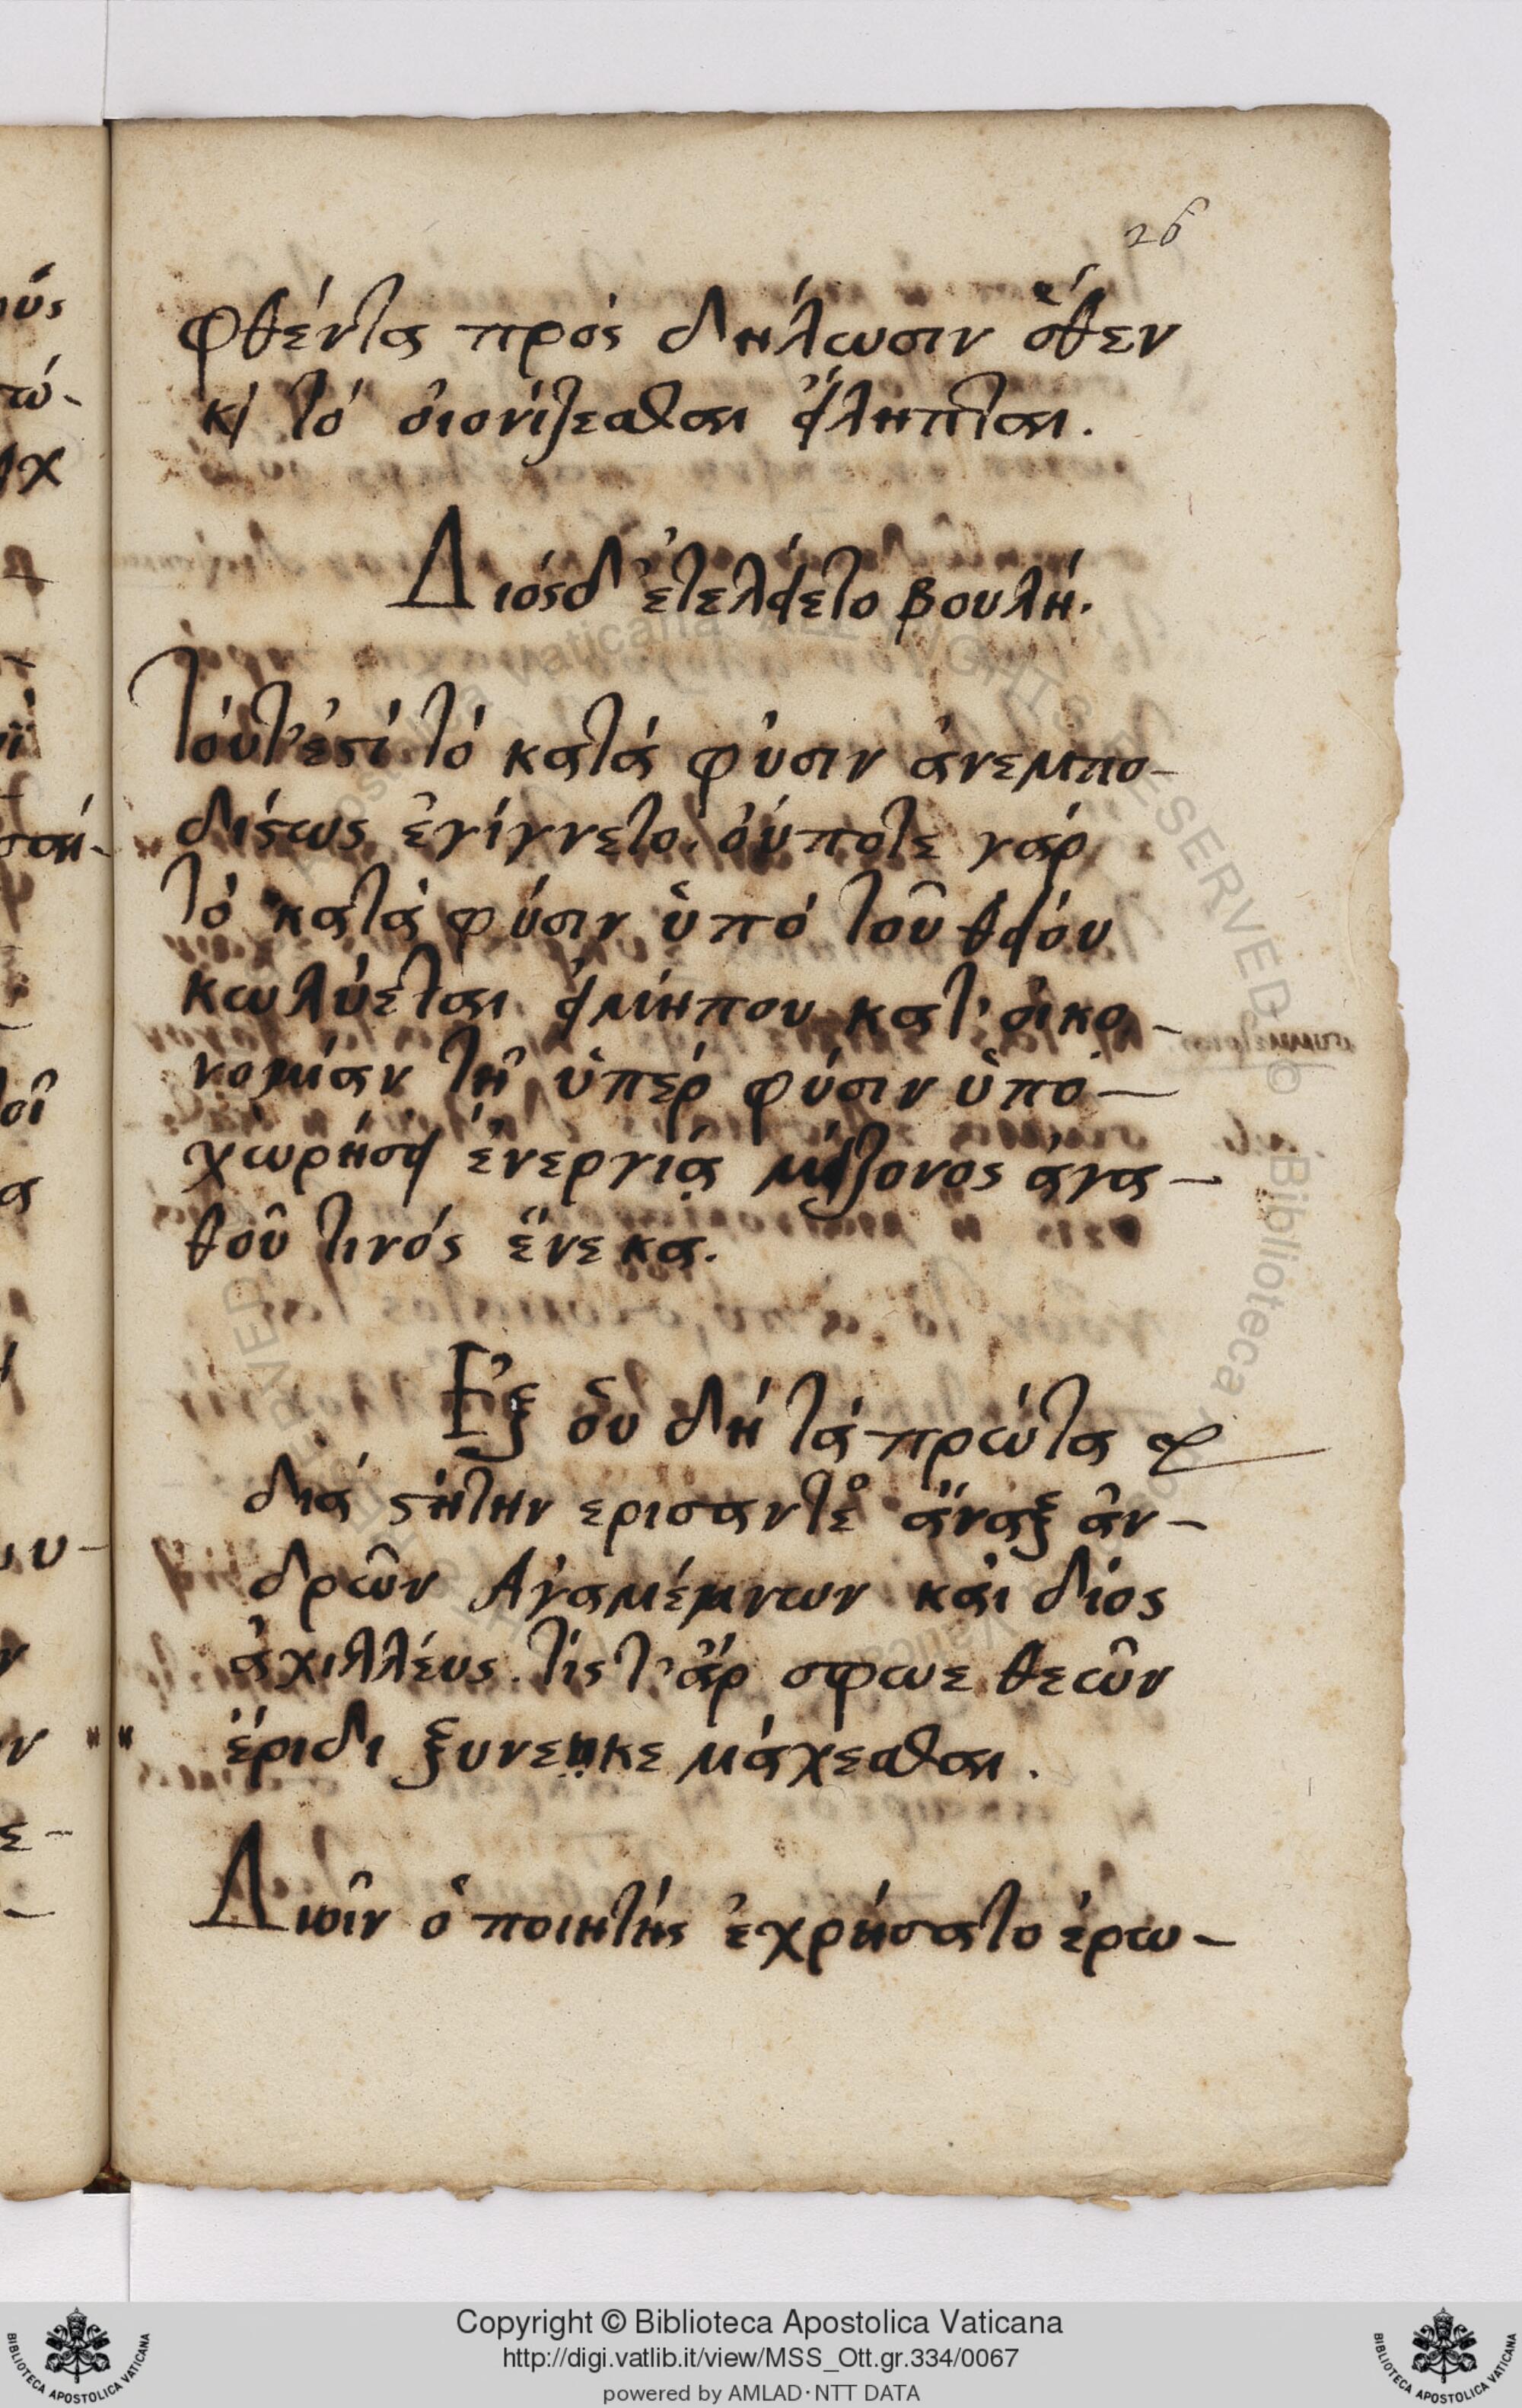 26
φθέντα πρὸς δήλωσιν ὅθεν
κὶ τὸ οἰονίζεσθαι εἴληπται.
Διὸς δ' ἐτελείετο βουλή.
Τουτ' ἐστὶ τὸ κατὰ φύσιν ἀνεμπο-
δίστως ἐγίγνετο. οὔποτε γάρ
τὸ κατὰ φύσιν ὑπὸ τοῦ θείου
κωλύεται εἰμήπου κατ' οἰκο-
νομίαν τῇ ὑπὲρ φύσιν ὑπο-
χωρήσῃ ἐνεργίᾳ μείζονος ἀγα-
θοῦ τινός ἕνεκα.
Ἐξ οὗ δὴ τὰ πρῶτα
διὰ στήτην ερισαντε ἄναξ ἀν-
δρῶν Ἀγαμέμνων καὶ δῖος
ἀχιλλέυς. τίς τ' ἄρ σφωε θεῶν
ἔριδι ξυνεηκε μάχεσθαι.
Διοῖν ὁ ποιητὴς ἐχρήσατο ἐρω-
Copyright © Biblioteca Apostolica Vaticana
http://digi.vatlib.it/view/MSS_Ott.gr.334/0067
powered by AMLAD·NTT DATA
BIBLIOTECA APOSTOLICA VATICANA
BIBLIOTECA APOSTOLICA VATICANA